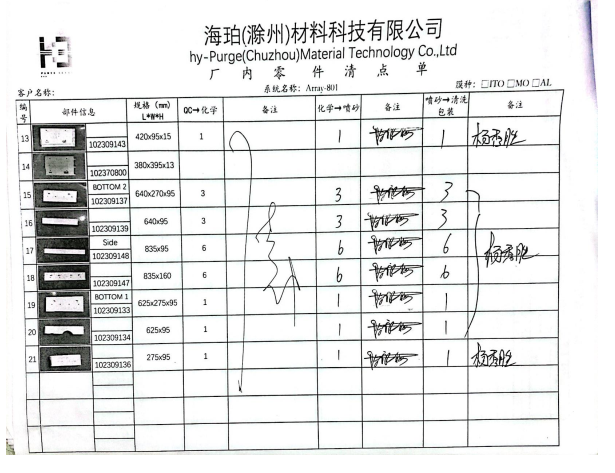 海珀(滁州)材料科技有限公司
hy-Purge(Chuzhou)Material Technology Co.,Ltd
厂内零件清点单
客户名称: 系统名称: Array-801 膜种: □ITO □MO □AL
编号 部件信息 规格 (mm) L*W*H QC→化学 备注 化学→喷砂 备注 喷砂→清洗包装 备注
13 102309143 420x95x15 1 1 1
14 102370800 380x395x13
15 BOTTOM 2 102309137 640x270x95 3 3 3
16 102309139 640x95 3 3 3
17 Side 102309148 835x95 6 6 6
18 102309147 835x160 6 6 6
19 BOTTOM 1 102309133 625x275x95 1 1 1
20 102309134 625x95 1 1 1
21 102309136 275x95 1 1 1